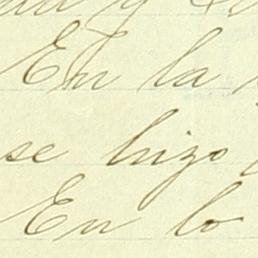 y
En la
se hizo
En lo